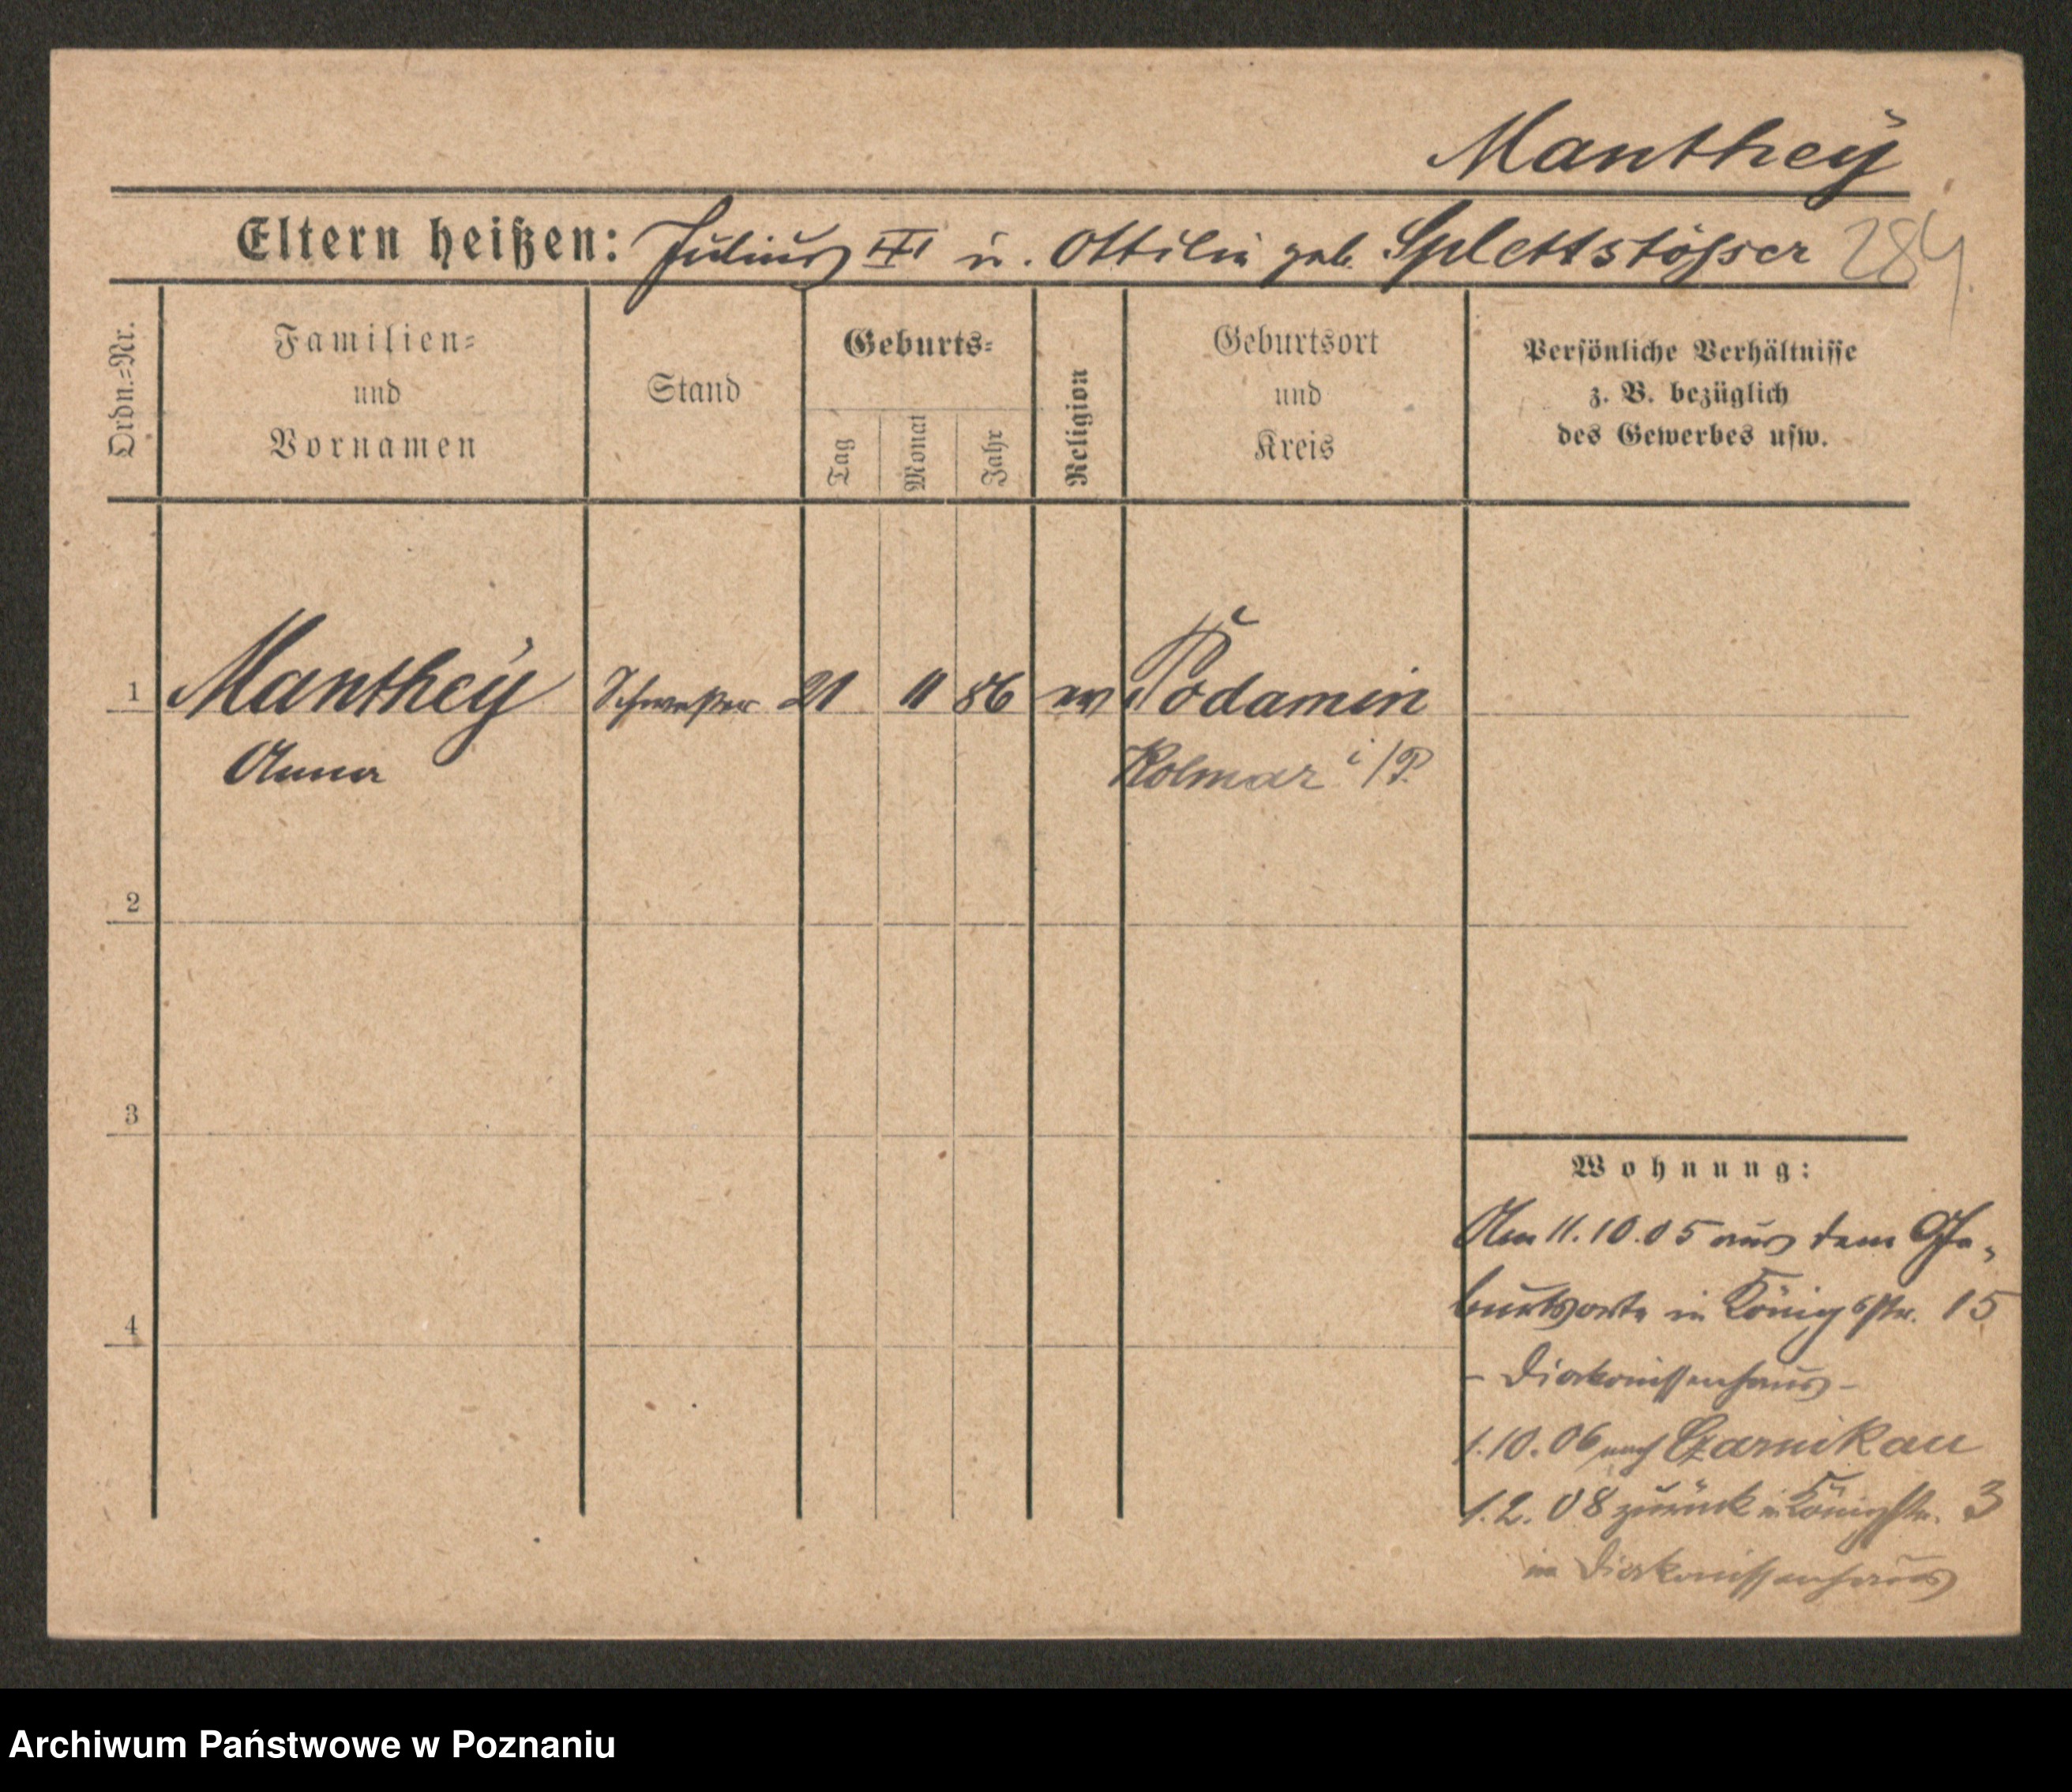 Manthey
Eltern heißen: Julius III u. Ottilie geb. Splettstößer 284
Ordn.=Nr.
Familien=
und
Vornamen
Stand
Geburts=
Tag
Monat
Jahr
Religion
Geburtsort
und
Kreis
Persönliche Verhältnisse
z. B. bezüglich
des Gewerbes usw.
1 Manthey Schwester 21 11 86 ev Podamin
Anna Kolmar i/P.
2
3
4
Wohnung:
Am 11.10.05 aus dem Ge-
burtsorte in Königstr. 15
- Diakonissenhaus -
1.10.06 nach Czarnikau
1.2.08 zurück in Königstr. 3
im Diakonissenhaus
Archiwum Państwowe w Poznaniu